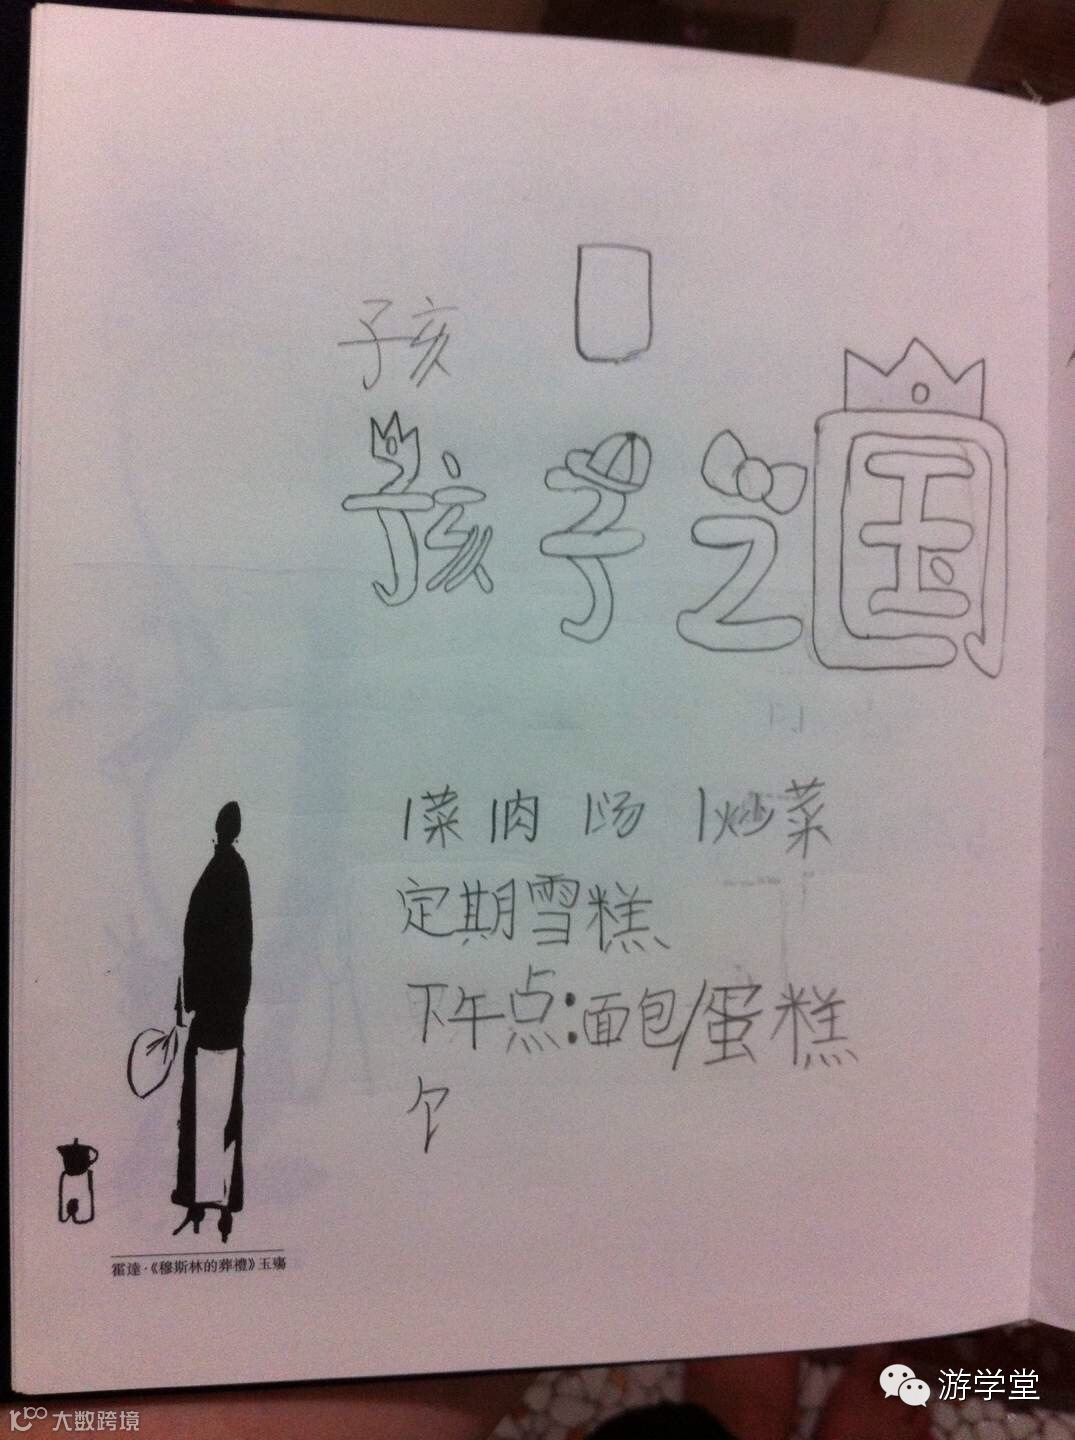 孩
孩子之国
1菜 1肉 1汤 1炒菜
定期雪糕
下午点:面包/蛋糕
霍達·《穆斯林的葬禮》玉殤
游学堂
大数跨境